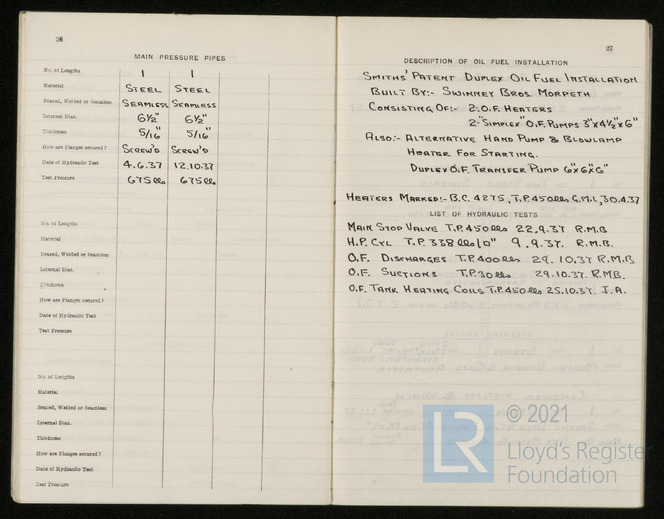 26
MAIN PRESSURE PIPES
No. of Lengths 1 1
Material STEEL STEEL
Brazed, Welded or Seamless SEAMLESS SEAMLESS
Internal Diar. 6½" 6½"
Thickness 5/16" 5/16"
How are Flanges secured? SCREW'D SCREW'D
Date of Hydraulic Test 4.6.37 12.10.37
Test Pressure 675 lbs 675 lbs
No. of Lengths
Material
Brazed, Welded or Seamless
Internal Diar.
Thickness
How are Flanges secured?
Date of Hydraulic Test
Test Pressure
No. of Lengths
Material
Brazed, Welded or Seamless
Internal Diar.
Thickness
How are Flanges secured?
Date of Hydraulic Test
Test Pressure
27
DESCRIPTION OF OIL FUEL INSTALLATION
SMITHS' PATENT DUPLEX OIL FUEL INSTALLATION
BUILT BY:- SWINNEY BROS. MORPETH
CONSISTING OF:- 2. O.F. HEATERS
2-"SIMPLEX" O.F. PUMPS 3"x4½"x6"
ALSO:- ALTERNATIVE HAND PUMP & BLOWLAMP
HEATER FOR STARTING.
DUPLEX O.F. TRANSFER PUMP 6"x6"x6"
HEATERS MARKED:- B.C. 4275, T.P. 450 lbs G.M.L, 30.4.37
LIST OF HYDRAULIC TESTS
MAIN STOP VALVE T.P. 450 lbs 22.9.37 R.M.B
H.P. CYL T.P. 338 lbs/□" 9.9.37. R.M.B.
O.F. DISCHARGES T.P. 400 lbs 29.10.37 R.M.B
O.F. SUCTIONS T.P. 30 lbs 29.10.37. R.M.B.
O.F. TANK HEATING COILS T.P. 450 lbs 25.10.37. J.A.
LR
© 2021
Lloyd's Register
Foundation